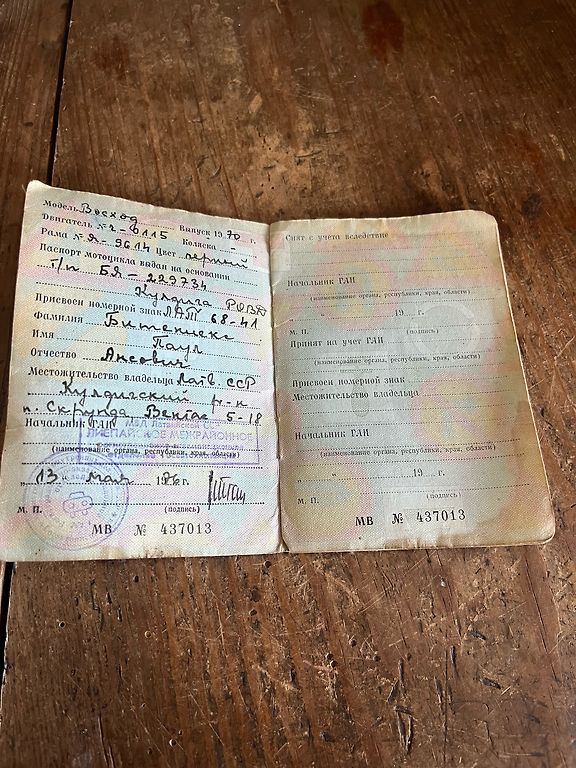 Модель Восход Выпуск 1970 г.
Двигатель № 2-0115
Рама № Я-9614 Цвет черный Коляска -
Паспорт мотоцикла выдан на основании
Т/п БЯ-229734
Кулдига РОВД
Присвоен номерной знак ЛАТ 68-41
Фамилия Битениекс
Имя Паул
Отчество Ансович
Местожительство владельца Латв. ССР
Кулдигский р-н
п. Скрунда, Вентас 5-18
Начальник ГАИ
МВД Латвийской ССР
ЛИЕПАЙСКОЕ МЕЖРАЙОННОЕ
(наименование органа, республики, края, области)
„13" мая 1976 г.
М. П. (подпись)
МВ № 437013
Снят с учета вследствие
Начальник ГАИ
(наименование органа, республики, края, области)
19 г.
М. П. (подпись)
Принят на учет ГАИ
(наименование органа, республики, края, области)
Присвоен номерной знак
Местожительство владельца
Начальник ГАИ
(наименование органа, республики, края, области)
„ " 19 г.
М. П. (подпись)
МВ № 437013